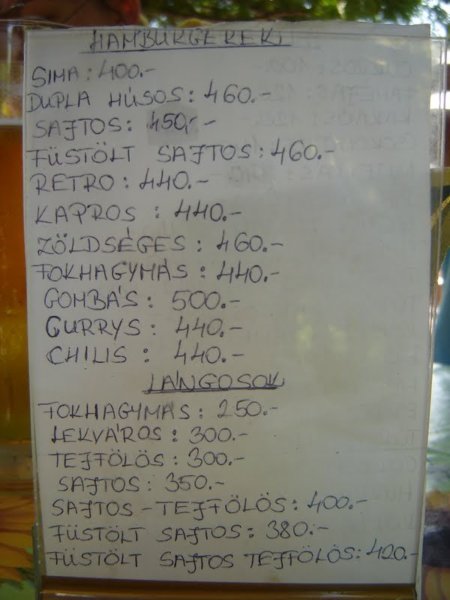 HAMBURGEREK
SIMA: 400.-
DUPLA HÚSOS: 460.-
SAJTOS: 450,-
FÜSTÖLT SAJTOS: 460.-
RETRO: 440.-
KAPROS: 440.-
ZÖLDSÉGES: 460.-
FOKHAGYMÁS: 440.-
GOMBÁS: 500.-
CURRYS: 440.-
CHILIS: 440.-
LÁNGOSOK
FOKHAGYMÁS: 250.-
LEKVÁROS: 300.-
TEJFÖLÖS: 300.-
SAJTOS: 350.-
SAJTOS-TEJFÖLÖS: 400.-
FÜSTÖLT SAJTOS: 380.-
FÜSTÖLT SAJTOS TEJFÖLÖS: 420.-